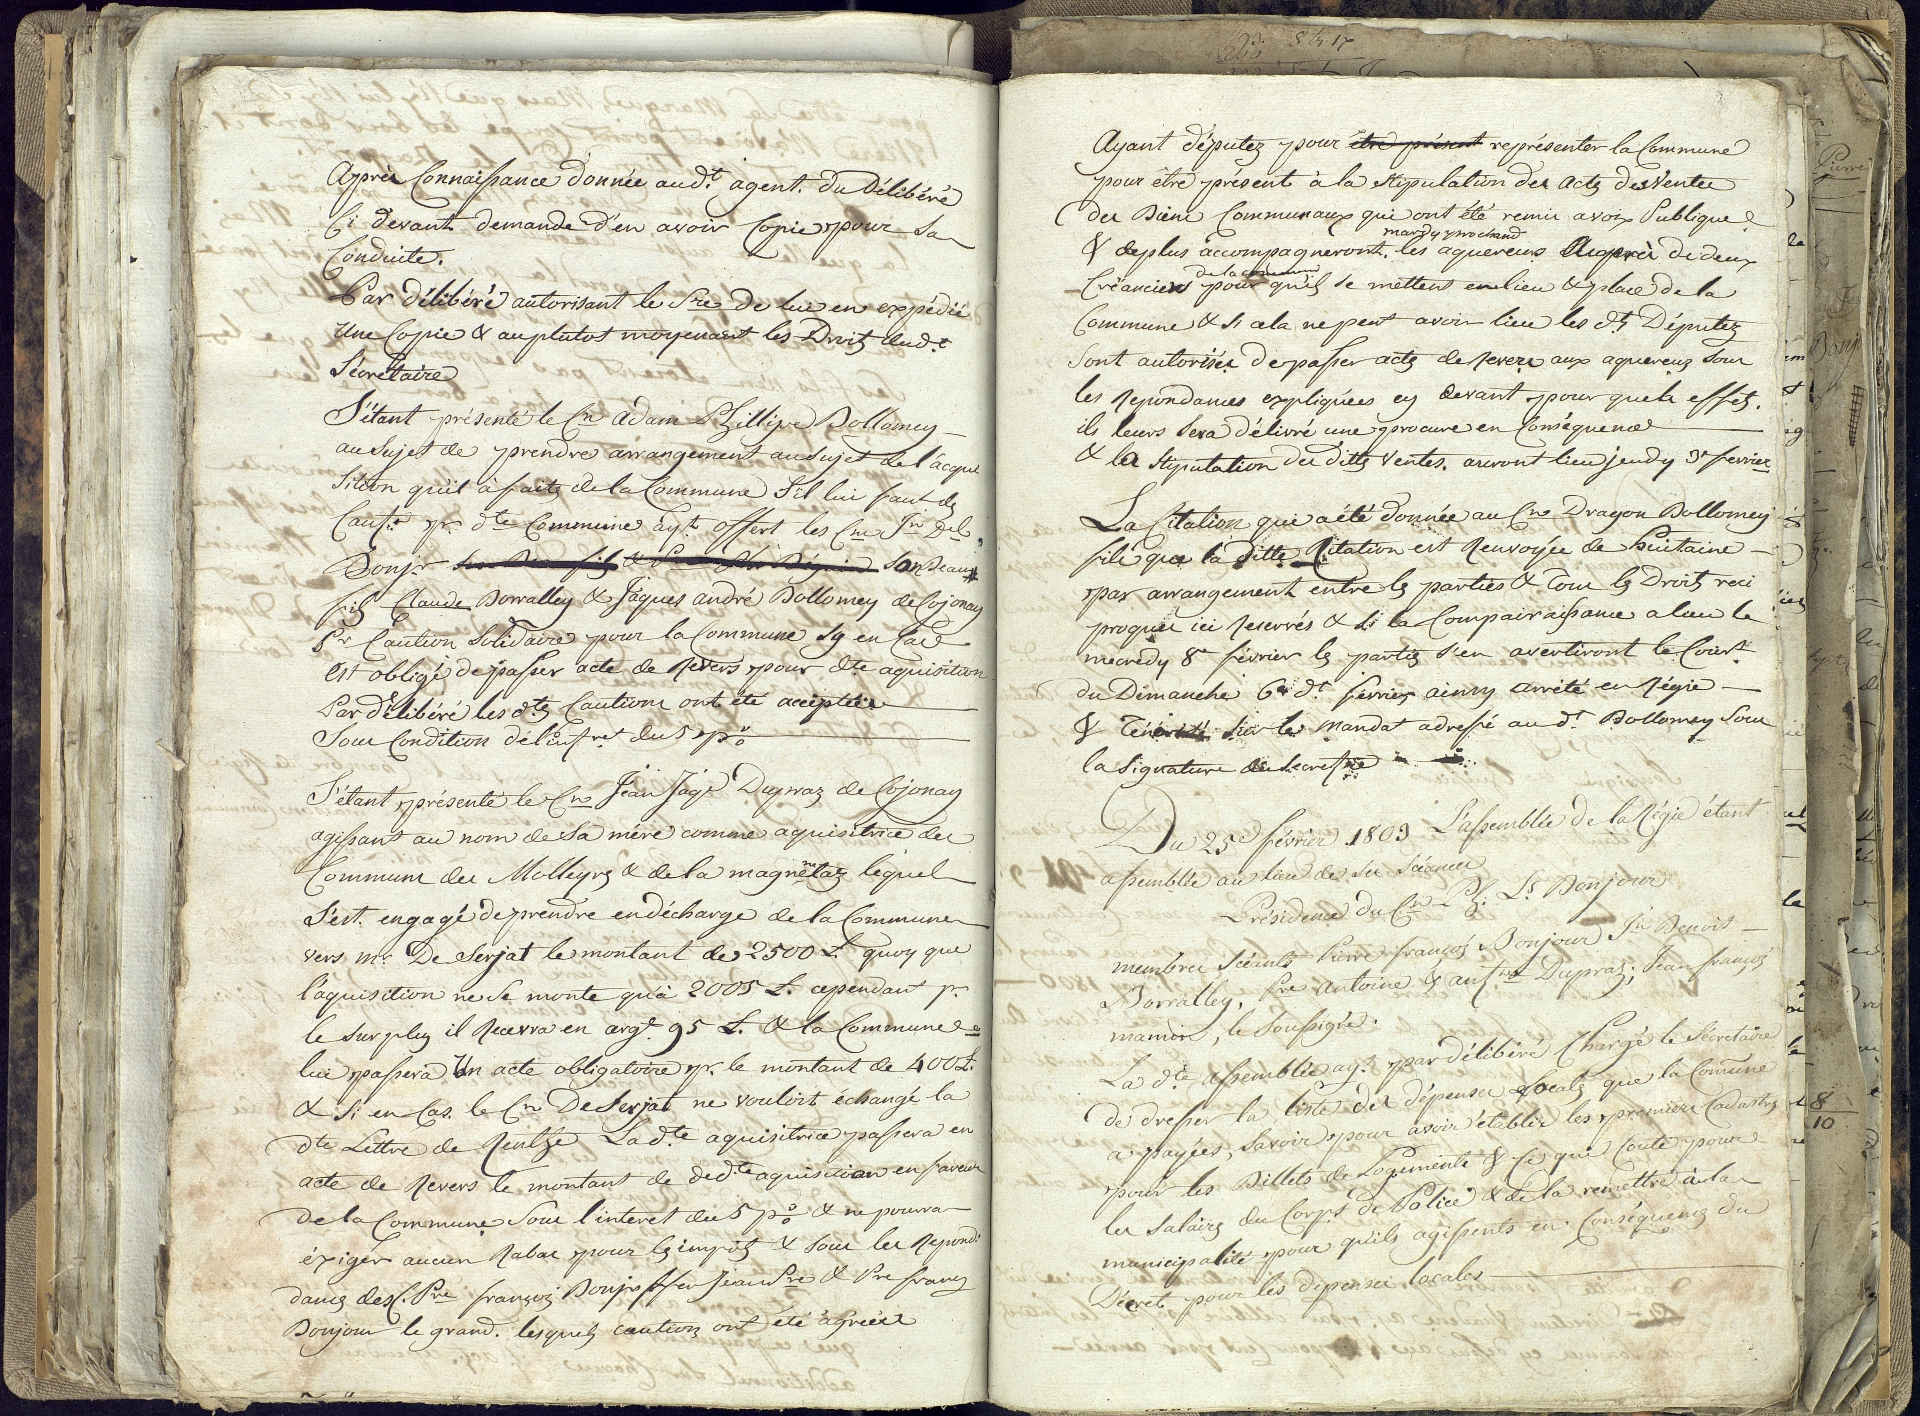 Après Connaissance donnée aud.t agent. du Délibéré
Ci devant demande d'en avoir Copie pour Sa
Conduite.
Par délibéré autorisant le S.re de lui en expédié
Une Copie & au plutot moyenant les Droits dud.t
Sécretaire
S'étant présenté le C.n Adam Phillipe Bollomey
au Sujet de prendre arrangement au Sujet de l'acqui
Sition qu'il à faite de la Commune S'il lui faut des
Caut.s pr. d.te Commune ay.t offert les C.ns J.n Dl.
Bonj.r Son Beau
fils Claude Borralley & Jaques andré Bollomey de Cojonay
P.r Caution Solidaire pour la Commune Sy en Cas
Est obligé de passer acte de Revers pour d.te aquisition
Par délibéré les d.tes Cautions ont été acceptées
Sous Condition de l'intret du 5 p%
S'étant présenté le C.n Jean Jaq. Dupraz de Cojonay
agissant au nom de Sa mére comme aquisitrice des
Communs des Molleyres & de la magnenetaz lequel
S'est engagé de prendre en décharge de la Commune
vers m.r De Serjat le montant de 2500 £. quoy que
l'aquisition ne Se monte qu'à 2005 £. cependant p.r
le Surplus il Recevra en arg.t 95 £. & la Commune
lui passera Un acte obligatoire pr. le montant de 400 £.
& Si en Cas. le C.n De Serjat ne vouloit échangé la
d.te Lettre de Rentse La d.te aquisitrice passera en
acte de Revers le montant de de d.te aquisition en faveur
de la Commune Sous l'interet du 5 p% & ne pourra
éxiger aucun Rabac pour les impots & Sous les Repond
dances des C. P.re françois Bonj.r ffeu Jean P.re & P.re françs
Bonjour le grand. lesquels cautions ont été agréées
Ayant députez pour être présent représenter la Commune
pour être présent à la Stipulation des Acts des Ventes
des Biens Communaux qui ont été remis a voix Publique
mardy prochand
& de plus accompagneront. les aquereurs Auprès de deux
de la commune
Créanciers pour qu'ils se mettent en lieu & place de la
Commune & Si cela ne peut avoir lieu les d.ts Députez
Sont autorisés de passer acte de Revers aux aquereurs Sous
les Repondances expliquées cy devant pour quels effets.
ils leurs Sera délivré une procure en Conséquence
& les Stipulation des dittes ventes. auront lieu jeudy 3.e fevrier
La Citation qui a été donnée au C.n Dragon Bollomey
fils que la ditte Citation est Renvoyée de huitaine
par arrangement entre les parties & Tous les Droits reci
proques ici Reservés & Si la Compairaissance a lieu le
mecredy 8.e février les parties S'en avertiront le Cour.t
du Dimanche 6.e d.t fevrier ainsy arrêté en Régie
& Ténorisé Sur le Mandat adressé au d.t Bollomey Sous
la Signature du Secret.re
Du 25.e février 1803 L'assemblée de la Régie étant
assemblée au lieu de Ses Séances
Présidence du C.n Ph: L.s Bonjour
membres Scéants Pierre françois Bonjour J.n Benoit
Borralley, P.re Antoine & aut.ne Dupraz; Jean françois
mamin, le Soussigné.
La d.te assemblée ay.t par délibéré Chargé le Sécretaire
de dresser la liste des dépenses Locales que la Comune
a payées, Savoir pour avoir établir les premiers Cadastres
pour les Billets de Logements & ce qui Coute pour
les Salaires du Corps de Police & de la remettre à la
municipalité pour qu'ils agissents en Conséquence du
Décret pour les dépenses locales
8
10